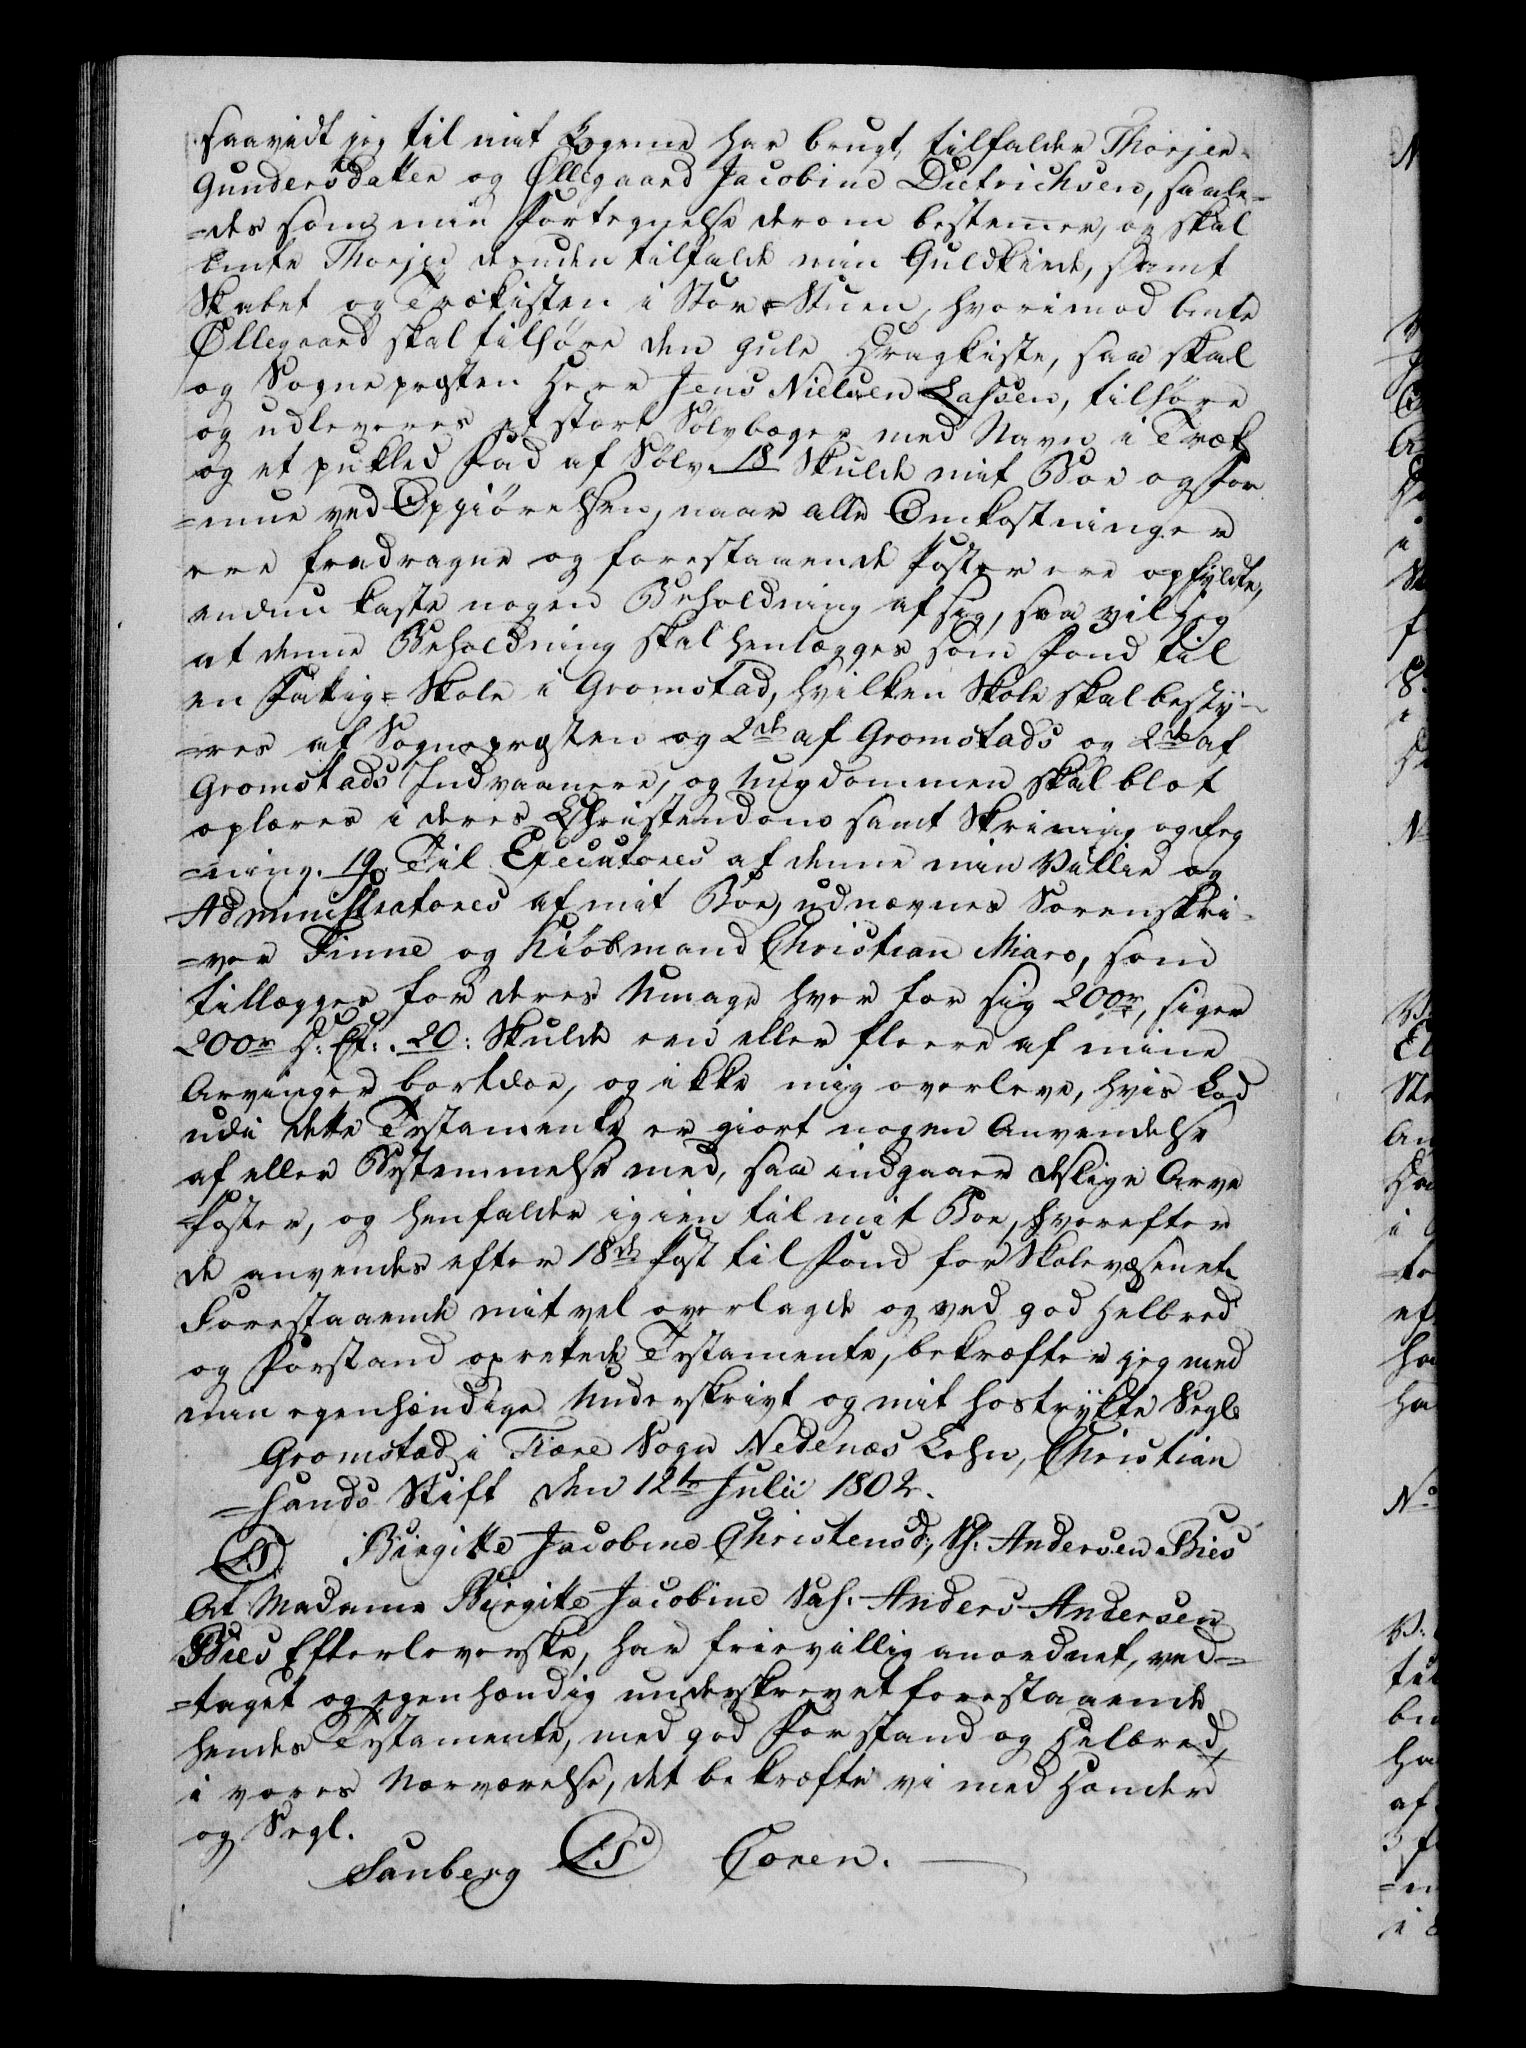 saavidt jeg til mit Legeme har brugt, tilfalder Thorjer
Gundersdatter og Øllegaard Jacobine Dietrichsen, saale-
=des som min Fortegnelse derom bestemer, og skal
bmte Thorjer desuden tilfalde min Guldkiede, samt
Skabet og Trækisten i Stor-Stuen, hvorimod bmte
Øllegaard skal tilhøre den gule Dragkiste, saa skal
og Sognepræsten Herr Jens Nielsen Lassen, tilhøre
og udleveres et stort Sølvbæger med Navn i Træk
og et pukled Fad af Sølv. 18 Skulde mit Boe og For
=mue ved Opgiørelsen, naar alle Omkostninger
ere fradragne og forestaaende Poster ere opfyldte,
endnu kaste nogen Beholdning af sig, saa vil jeg
at denne Beholdning skal henlægges som Fond til
en Fattig-Skole i Gromstad, hvilken Skole skal besty-
=res af Sognepræsten og 2de af Gromstads og 2de af
Gromstads Indvaanere, og Ungdommen skal blot
oplæres i deres Christendom samt Skrivning og Reg
=ning. 19. Til Executores af denne min Villie og
Administratores af mit Boe, udnævnes Sorenskri-
=ver Finne og Kiøbmand Christian Marø, som
tillægges for deres Umage hver for sig 200rd, siger
200rd D: Ct: . 20: Skulde een eller fleere af mine
Arvinger bortdøe, og ikke mig overleve, hvis Lod
udi dette Testamente er giort nogen Anvendelse
af eller Bestemmelse med, saa indgaaer deslige Arve
Poster, og henfalder igien til mit Boe, hvorefter
de anvendes efter 18de Post til Fond for Skolevæsenet.
Forestaaende mit vel overlagde og ved god Helbred
og Forstand oprettede Testamente, bekræfter jeg med
min egenhændige Underskrivt og mit hostrykte Segl.
Gromstad i Fiære Sogn Nedenæs Lehn, Christian
=sands Stift den 12te Julii 1802.
(LS) Birgitte Jacobine Christensd:, Sl. Andersen Bies
At Madame Birgitte Jacobine Sal. Anders Andersen
Bies Efterleverske, har frievillig anordnet, ved-
=taget og egenhændig underskrevet forestaaende
hendes Testamente, med god Forstand og Helbred,
i vores Nærværelse, det bekræfte vi med Hænder
og Segl.
Sanberg (LS) Toren.